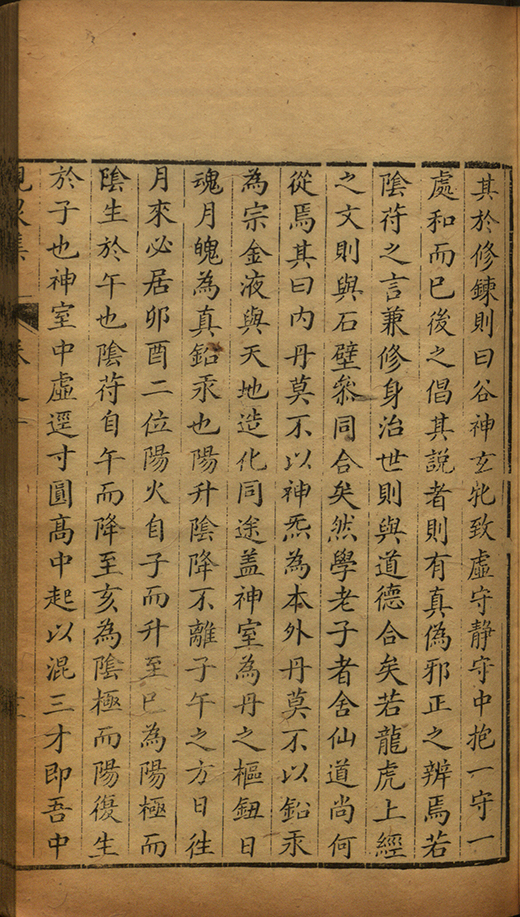 其於修鍊則曰谷神玄牝致虛守靜守中抱一守一
處和而已後之倡其說者則有真偽邪正之辨焉若
陰符之言兼修身治世則與道德合矣若龍虎上經
之文則與石壁叅同合矣然學老子者舍仙道尚何
從焉其曰內丹莫不以神炁為本外丹莫不以鉛汞
為宗金液與天地造化同途盖神室為丹之樞鈕日
魂月魄為真鉛汞也陽升陰降不離子午之方日往
月來必居卯酉二位陽火自子而升至巳為陽極而
陰生於午也陰符自午而降至亥為陰極而陽復生
於子也神室中虛逕寸圓高中起以混三才即吾中
峴泉集